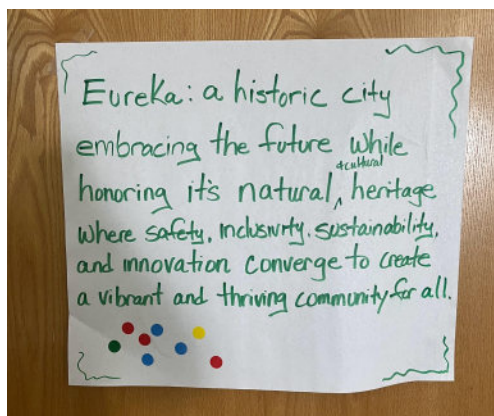 Eureka: a historic city
embracing the future while
& cultural
honoring it's natural, heritage
where safety, inclusivity, sustainability,
and innovation converge to create
a vibrant and thriving community for all.